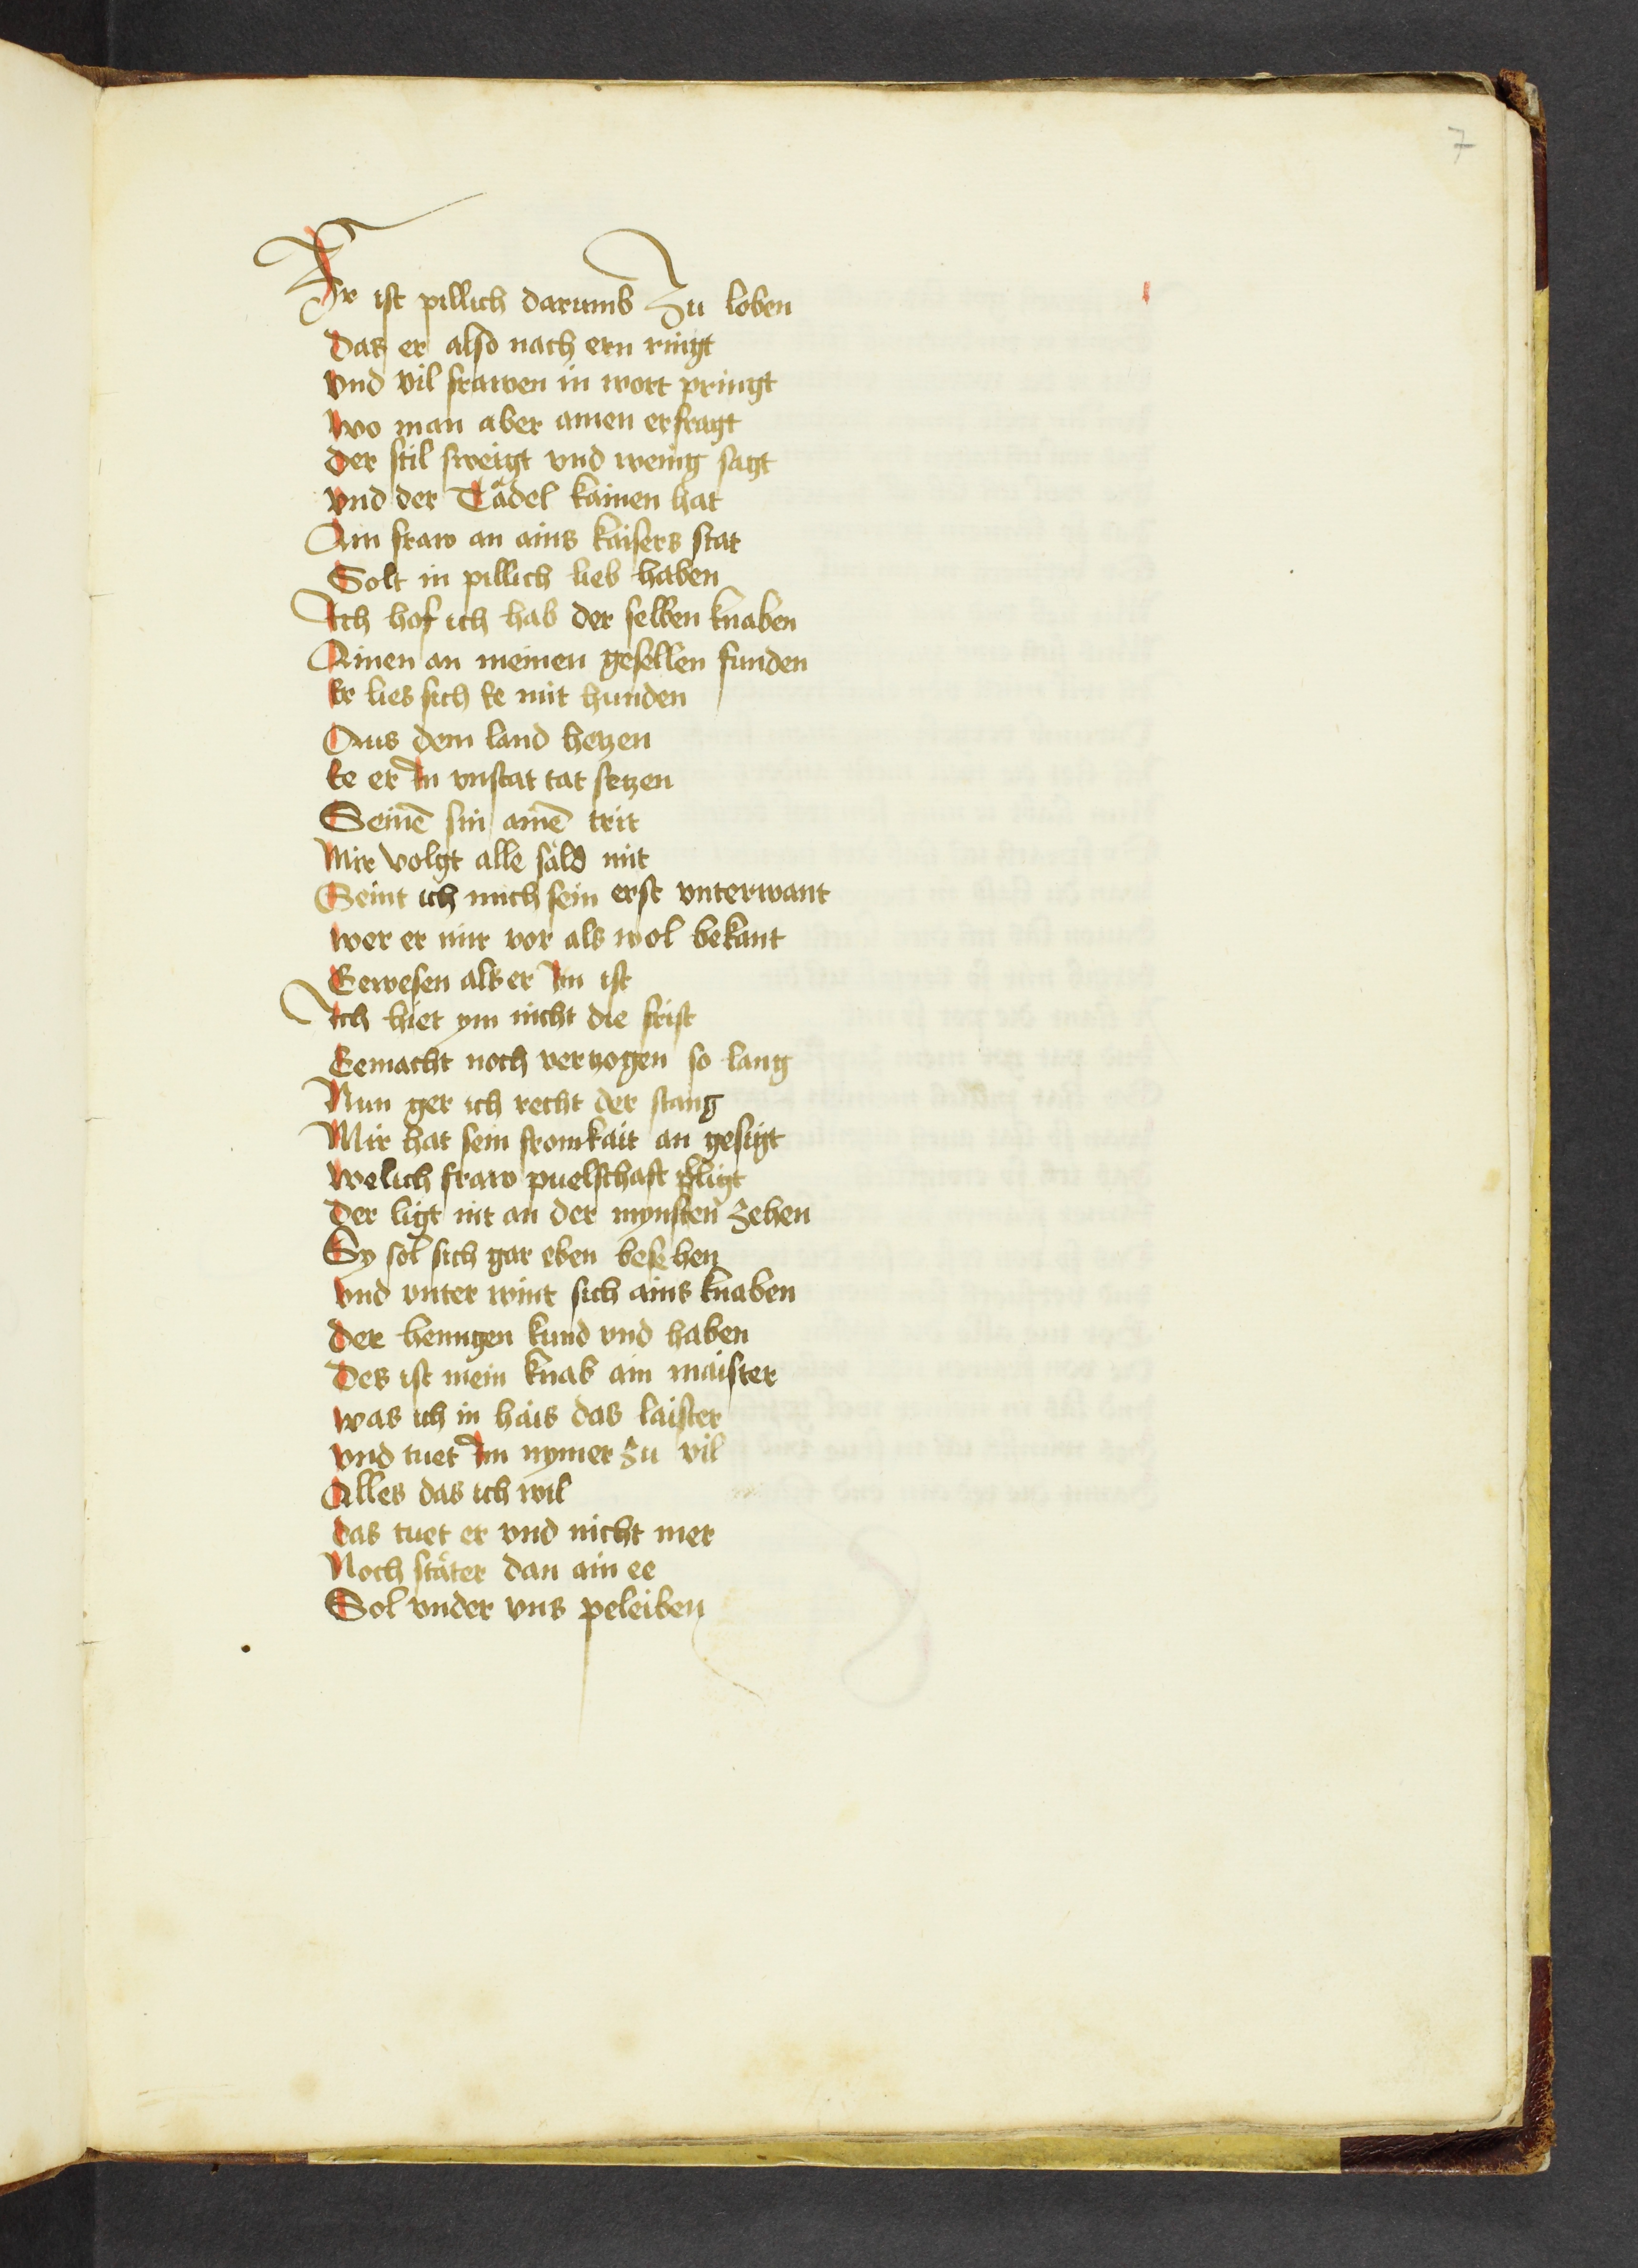 7
Er ist pillich darumb Zu loben
Das er also nach ern ringt
vnd vil frawen in wort pringt
wo man aber ainen erfragt
der stil sweigt vnd wenig sagt
vnd der Tådel kainen hat
Ain fraw an ains kaisers stat
Solt in pillich lieb haben
Ich hof ich hab der selben knaben
Ainen an meinen gesellen funden
Er lies sich Ee mit hunden
Aus dem land hetzen
Ee er In vnstat tat setzen
Seinē sin ainē trit
Mir volgt alle såld mit
Seint ich mich sein erst vnterwant
wer er mir vor als wol bekant
Gewesen als er Im ist
Ich hiet ym nicht die frist
Gemacht noch vertzogen so lang
Nun ger ich recht der stang
Mir hat sein fromkait an gesigt
welich fraw puelschaft pfligt
Der ligt nit an der mynsten zehen
Sy sol sich gar eben besehen
vnd vnter wint sich ains knaben
der henngen kund vnd haben
Des ist mein knab ain maister
was ich in hais das laister
vnd tuet Im nymer zu vil
Alles das ich wil
das tuet er vnd nicht mer
Noch ståter dan ain ee
Sol vnder vns peleiben